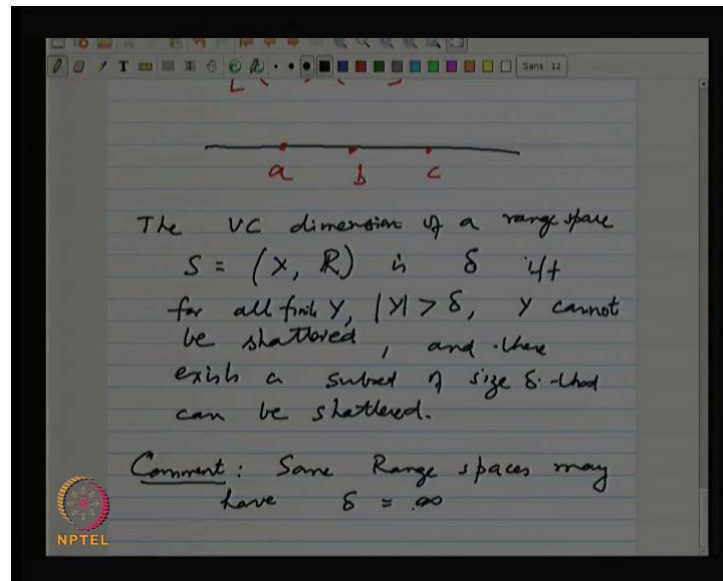 T
Sans 12
a b c
The VC dimension of a range space
S = (X, R) is δ iff
for all finite Y, |Y| > δ, Y cannot
be shattered, and there
exists a subset of size δ that
can be shattered.
Comment: Some Range spaces may
have δ = ∞
NPTEL